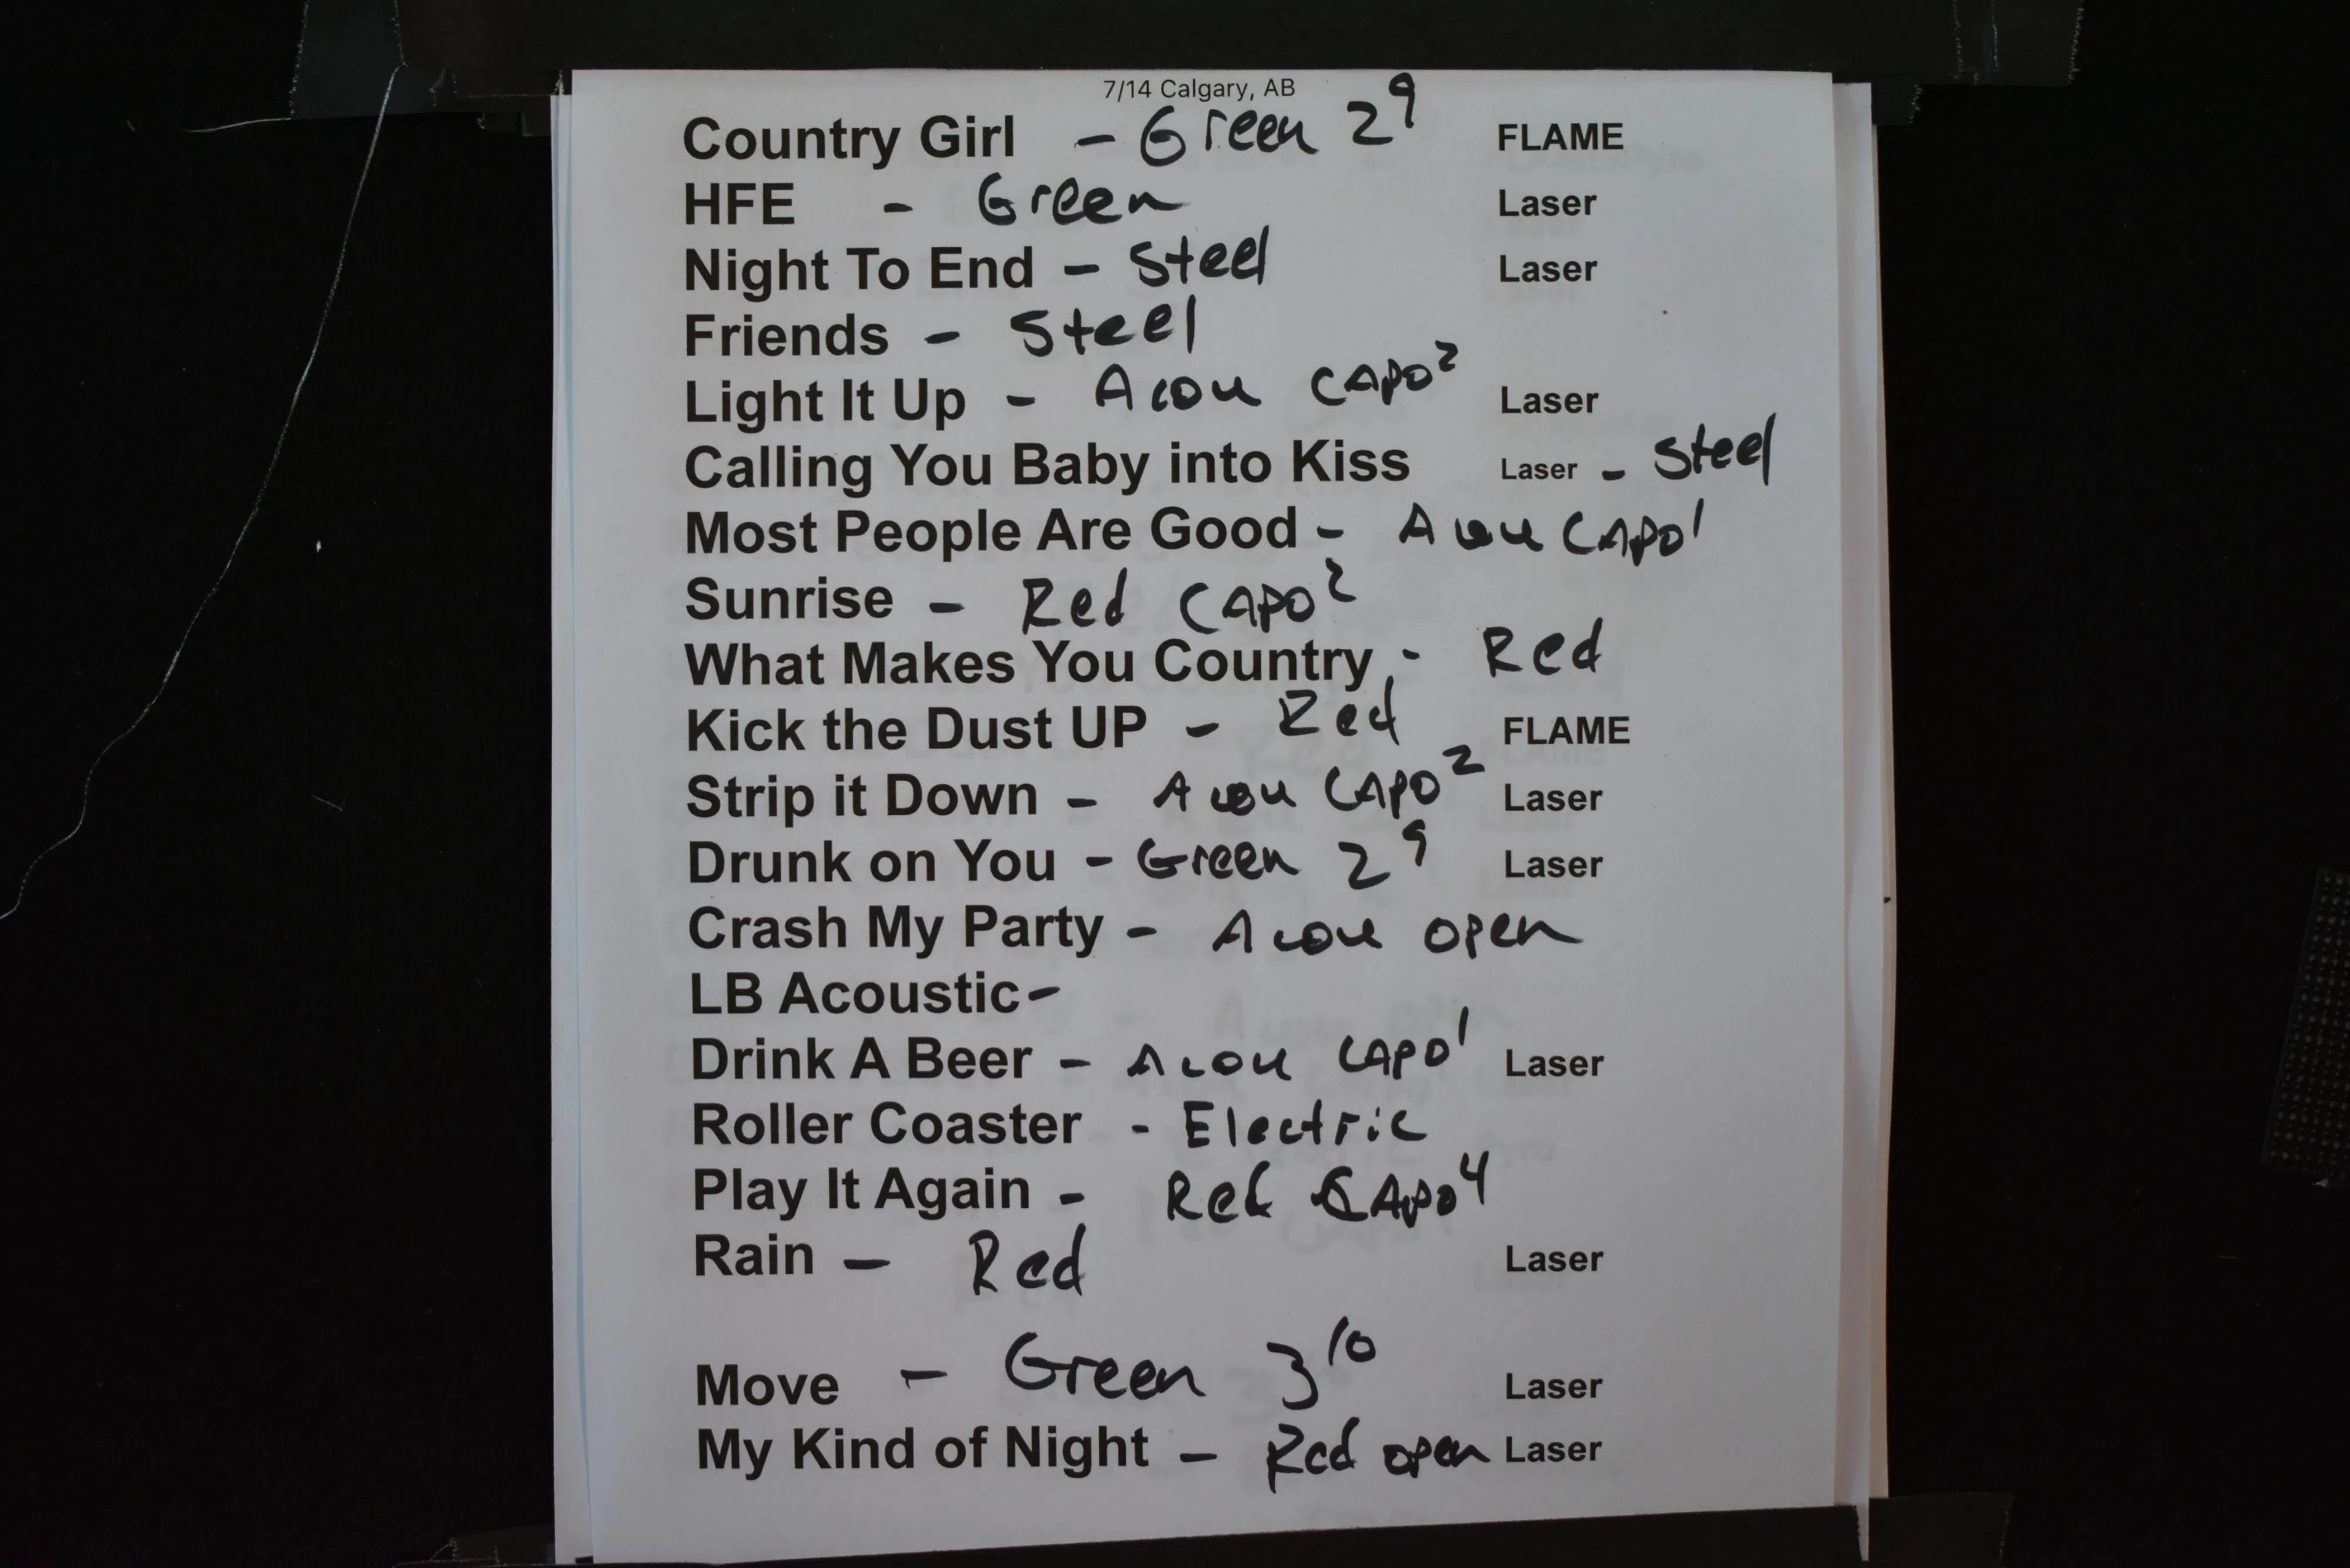 7/14 Calgary, AB
Country Girl - Green 2⁹ FLAME
HFE - Green Laser
Night To End - Steel Laser
Friends - Steel
Light It Up - Acou CAPO² Laser
Calling You Baby into Kiss Laser - Steel
Most People Are Good - Acou CAPO¹
Sunrise - Red CAPO²
What Makes You Country - Red
Kick the Dust UP - Red FLAME
Strip it Down - Acou CAPO² Laser
Drunk on You - Green 2⁹ Laser
Crash My Party - Acou open
LB Acoustic -
Drink A Beer - Acou CAPO¹ Laser
Roller Coaster - Electric
Play It Again - Red CAPO⁴
Rain - Red Laser
Move - Green 3¹⁰ Laser
My Kind of Night - Red open Laser